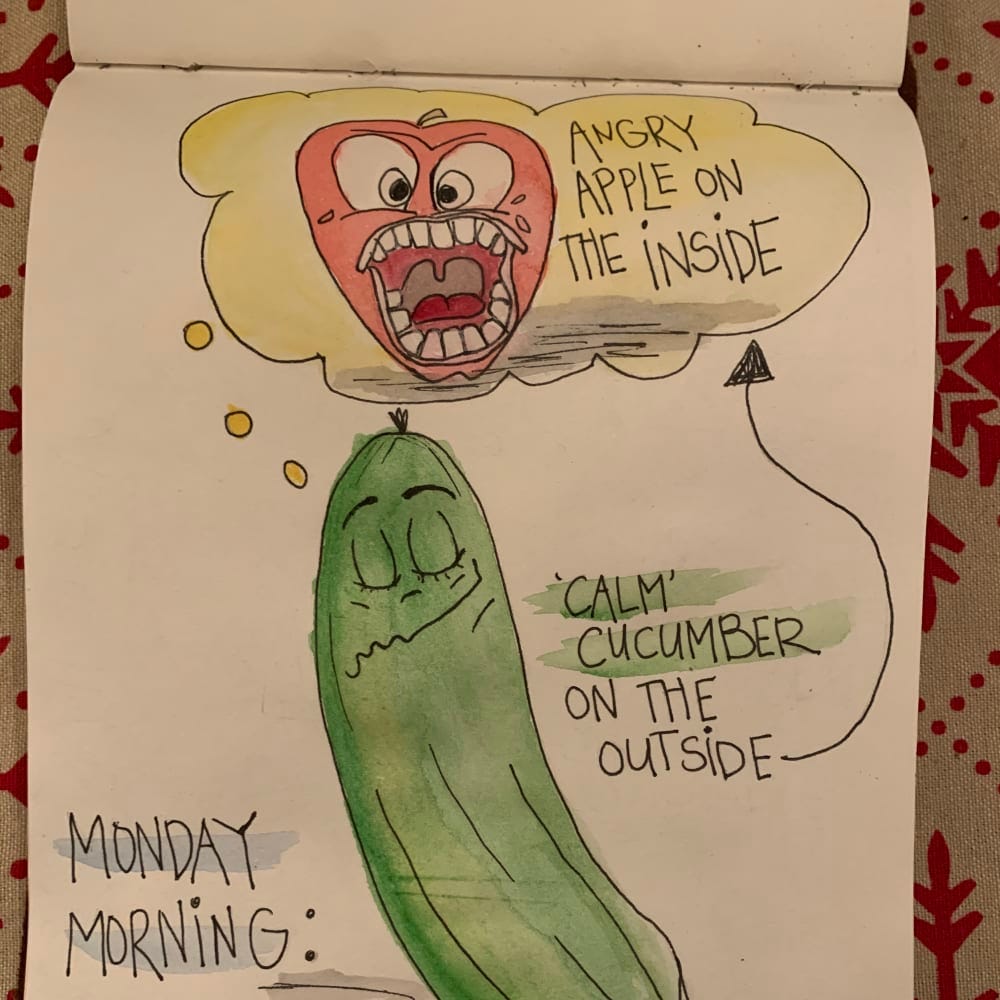 ANGRY
APPLE ON
THE INSIDE
'CALM'
CUCUMBER
ON THE
OUTSIDE
MONDAY
MORNING: